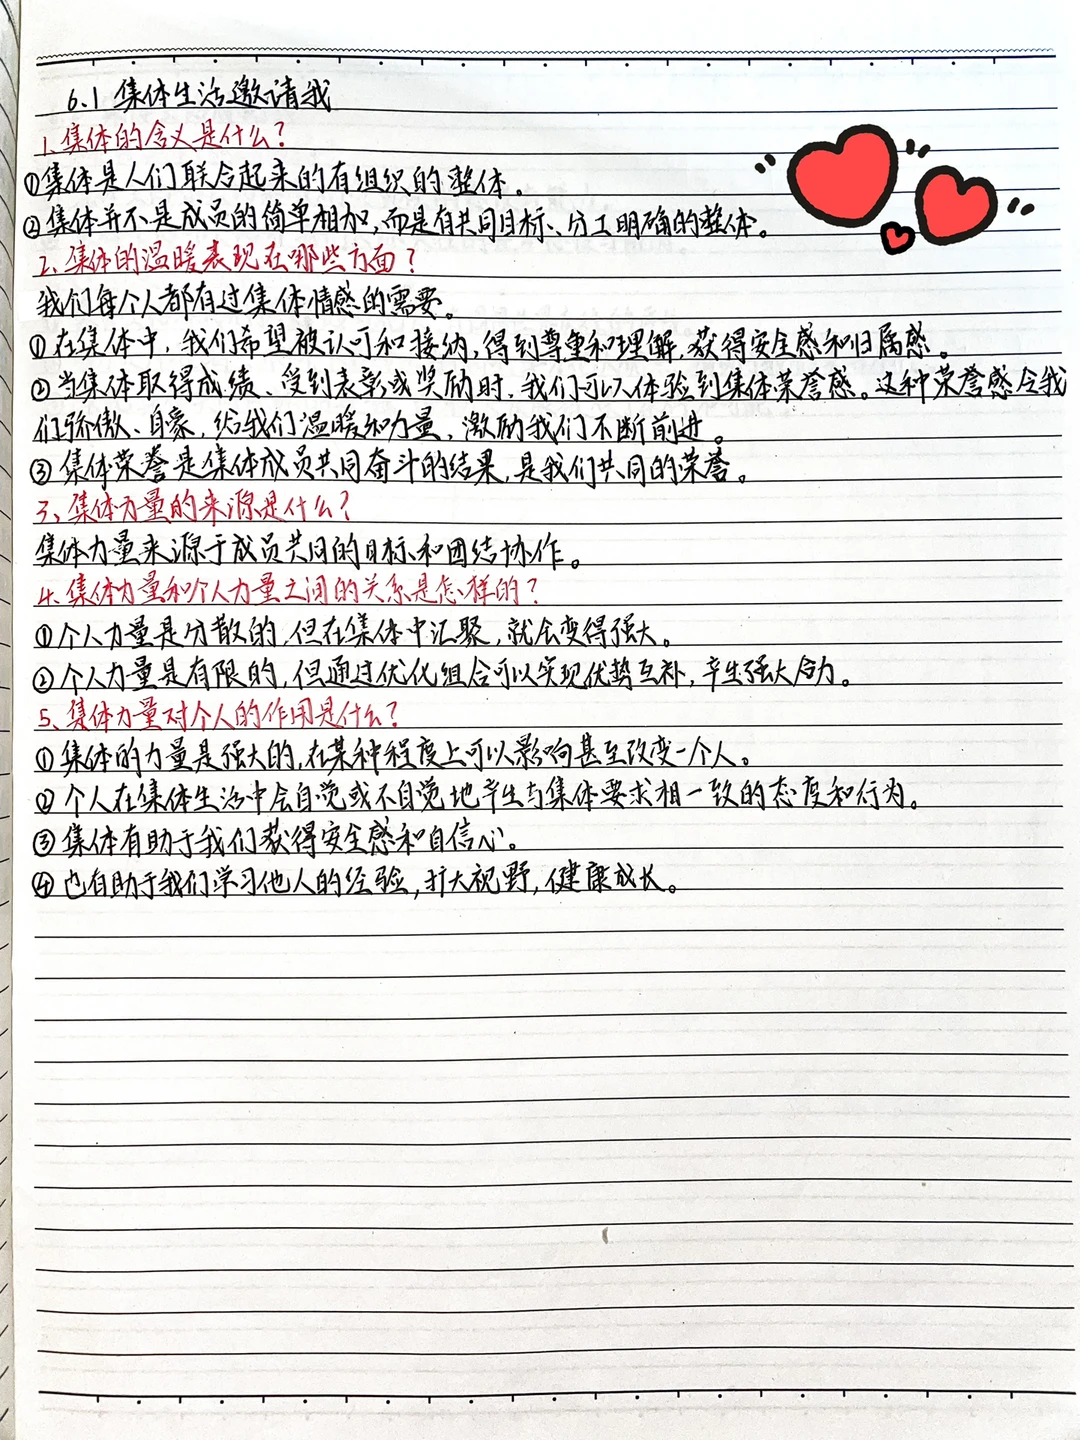 6.1 集体生活邀请我
1、集体的含义是什么？
①集体是人们联合起来的有组织的整体。
②集体并不是成员的简单相加，而是有共同目标、分工明确的整体。
2、集体的温暖表现在哪些方面？
我们每个人都有过集体情感的需要。
①在集体中，我们希望被认可和接纳，得到尊重和理解，获得安全感和归属感。
②当集体取得成绩、受到表彰或奖励时，我们可以体验到集体荣誉感。这种荣誉感令我
们骄傲、自豪，给我们温暖和力量，激励我们不断前进。
③集体荣誉是集体成员共同奋斗的结果，是我们共同的荣誉。
3、集体力量的来源是什么？
集体力量来源于成员共同的目标和团结协作。
4、集体力量和个人力量之间的关系是怎样的？
①个人力量是分散的，但在集体中汇聚，就会变得强大。
②个人力量是有限的，但通过优化组合可以实现优势互补，产生强大合力。
5、集体力量对个人的作用是什么？
①集体的力量是强大的，在某种程度上可以影响甚至改变一个人。
②个人在集体生活中会自觉或不自觉地产生与集体要求相一致的态度和行为。
③集体有助于我们获得安全感和自信心。
④也有助于我们学习他人的经验，扩大视野，健康成长。